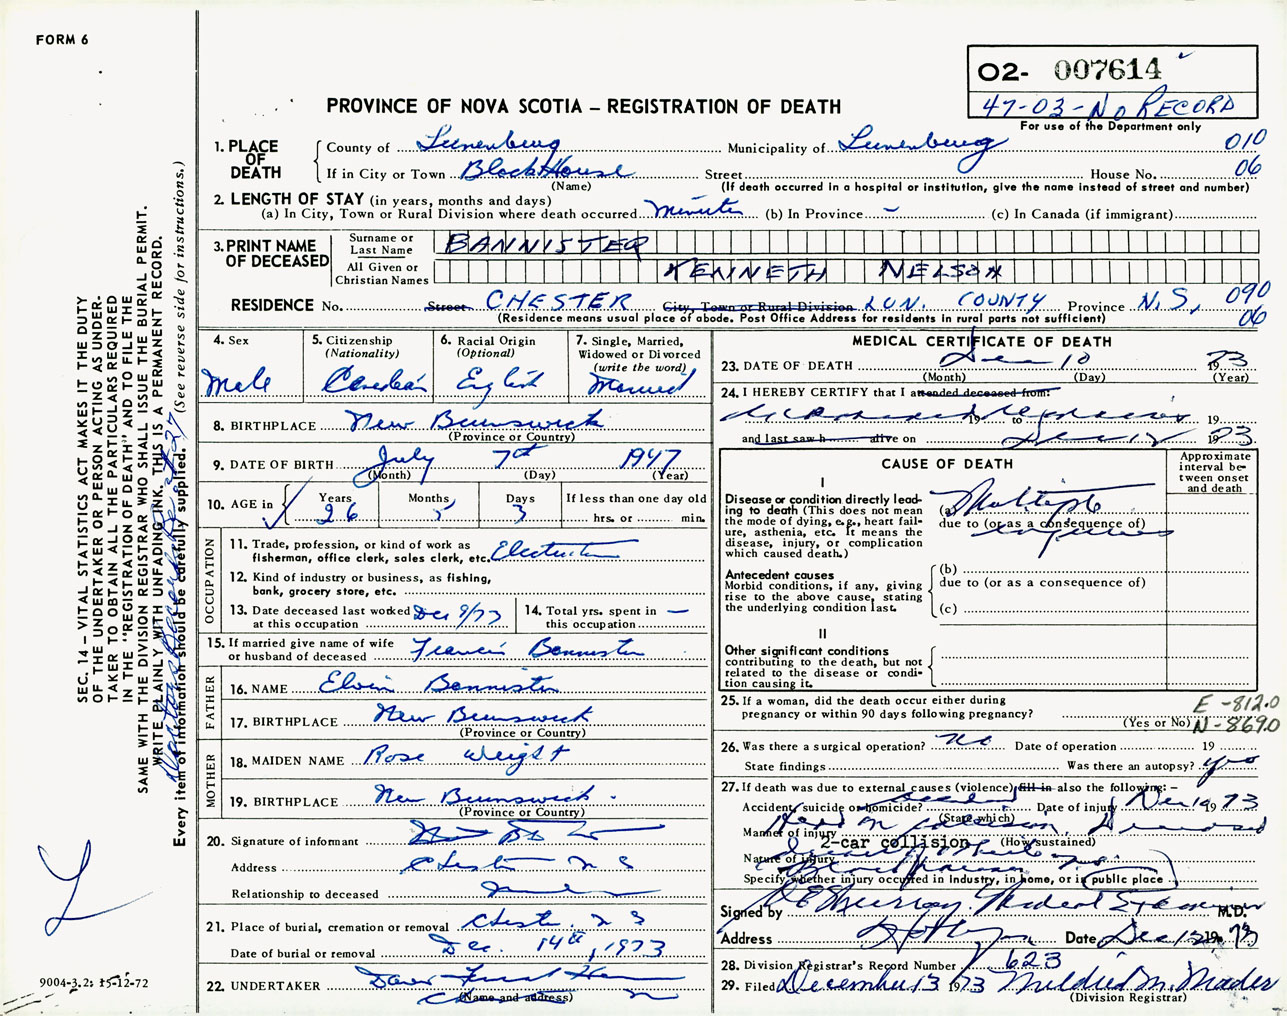 FORM 6
O2- 007614
47-03-No RECORD
For use of the Department only
PROVINCE OF NOVA SCOTIA – REGISTRATION OF DEATH
1. PLACE OF DEATH
County of Lunenburg Municipality of Lunenburg 010
If in City or Town BlockHouse Street House No. 06
(Name) (If death occurred in a hospital or institution, give the name instead of street and number)
2. LENGTH OF STAY (in years, months and days)
(a) In City, Town or Rural Division where death occurred minutes (b) In Province – (c) In Canada (if immigrant)
3. PRINT NAME OF DECEASED
Surname or Last Name BANNISTER
All Given or Christian Names KENNETH NELSON
RESIDENCE No. Street CHESTER City, Town or Rural Division LUN. COUNTY Province N.S, 090
(Residence means usual place of abode. Post Office Address for residents in rural parts not sufficient) 06
4. Sex
Male
5. Citizenship
(Nationality)
Canadian
6. Racial Origin
(Optional)
English
7. Single, Married,
Widowed or Divorced
(write the word)
Married
8. BIRTHPLACE New Brunswick
(Province or Country)
9. DATE OF BIRTH July 7th 1947
(Month) (Day) (Year)
10. AGE in Years Months Days If less than one day old
26 5 3 hrs. or min.
OCCUPATION
11. Trade, profession, or kind of work as
fisherman, office clerk, sales clerk, etc. Electrician
12. Kind of industry or business, as fishing,
bank, grocery store, etc.
13. Date deceased last worked
at this occupation Dec 9/73
14. Total yrs. spent in
this occupation –
15. If married give name of wife
or husband of deceased Francis Bannister
FATHER
16. NAME Elvin Bannister
17. BIRTHPLACE New Brunswick
(Province or Country)
MOTHER
18. MAIDEN NAME Rose Weight
19. BIRTHPLACE New Brunswick.
(Province or Country)
20. Signature of informant
Address Chester N S
Relationship to deceased
21. Place of burial, cremation or removal Chester N S
Date of burial or removal Dec. 14th, 1973
22. UNDERTAKER
(Name and address)
MEDICAL CERTIFICATE OF DEATH
23. DATE OF DEATH Dec 10 1973
(Month) (Day) (Year)
24. I HEREBY CERTIFY that I attended deceased from:
19 to 19
and last saw h alive on Dec 12 1973
CAUSE OF DEATH
Approximate interval between onset and death
I
Disease or condition directly leading to death (This does not mean the mode of dying, e.g., heart failure, asthenia, etc. It means the disease, injury, or complication which caused death.)
(a) Multiple
due to (or as a consequence of)
injuries
Antecedent causes
Morbid conditions, if any, giving rise to the above cause, stating the underlying condition last.
(b)
due to (or as a consequence of)
(c)
II
Other significant conditions
contributing to the death, but not related to the disease or condition causing it.
25. If a woman, did the death occur either during
pregnancy or within 90 days following pregnancy?
(Yes or No)
E-812.0
N-869.0
26. Was there a surgical operation? no Date of operation 19
State findings Was there an autopsy? yes
27. If death was due to external causes (violence) fill in also the following:–
Accident, suicide or homicide? accident Date of injury Dec 10 1973
(State which)
Manner of injury Head on collision, Deceased
2-car collision (How sustained)
Nature of injury
Specify whether injury occurred in Industry, in home, or in public place
Signed by Murray. Medical Examiner M.D.
Address Date Dec 12 1973
28. Division Registrar's Record Number 623
29. Filed December 13 1973 Mildred M. Mader
(Division Registrar)
SEC. 14 – VITAL STATISTICS ACT MAKES IT THE DUTY
OF THE UNDERTAKER OR PERSON ACTING AS UNDER-
TAKER TO OBTAIN ALL THE PARTICULARS REQUIRED
IN THE "REGISTRATION OF DEATH" AND TO FILE THE
SAME WITH THE DIVISION REGISTRAR WHO SHALL ISSUE THE BURIAL PERMIT.
WRITE PLAINLY WITH UNFADING INK. THIS IS A PERMANENT RECORD.
Every item of information should be carefully supplied. (See reverse side for instructions.)
L
9004-3.2: 15-12-72